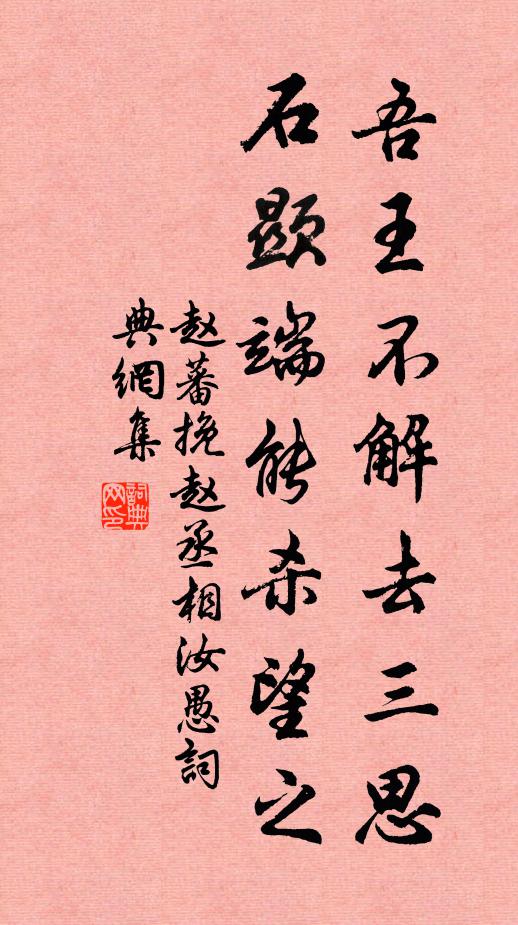 吾王不解去三思
石顯端能杀望之
赵蕃挽赵丞相汝愚詞
典網集
詞典网印